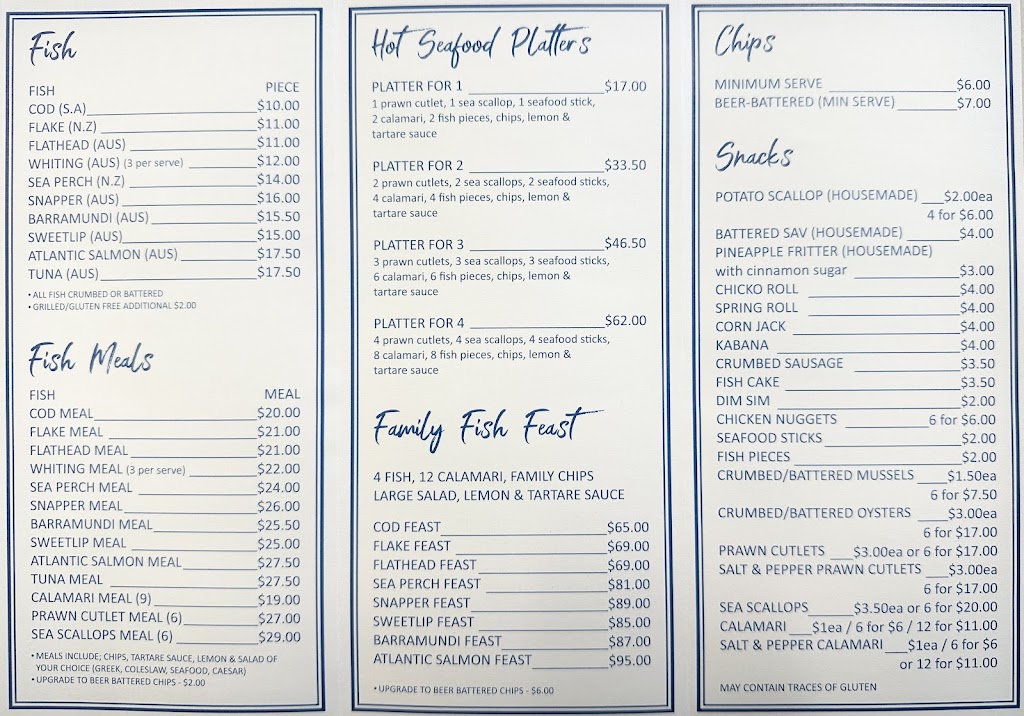 Fish
FISH PIECE
COD (S.A) $10.00
FLAKE (N.Z) $11.00
FLATHEAD (AUS) $11.00
WHITING (AUS) (3 per serve) $12.00
SEA PERCH (N.Z) $14.00
SNAPPER (AUS) $16.00
BARRAMUNDI (AUS) $15.50
SWEETLIP (AUS) $15.00
ATLANTIC SALMON (AUS) $17.50
TUNA (AUS) $17.50
• ALL FISH CRUMBED OR BATTERED
• GRILLED/GLUTEN FREE ADDITIONAL $2.00
Fish Meals
FISH MEAL
COD MEAL $20.00
FLAKE MEAL $21.00
FLATHEAD MEAL $21.00
WHITING MEAL (3 per serve) $22.00
SEA PERCH MEAL $24.00
SNAPPER MEAL $26.00
BARRAMUNDI MEAL $25.50
SWEETLIP MEAL $25.00
ATLANTIC SALMON MEAL $27.50
TUNA MEAL $27.50
CALAMARI MEAL (9) $19.00
PRAWN CUTLET MEAL (6) $27.00
SEA SCALLOPS MEAL (6) $29.00
• MEALS INCLUDE; CHIPS, TARTARE SAUCE, LEMON & SALAD OF
YOUR CHOICE (GREEK, COLESLAW, SEAFOOD, CAESAR)
• UPGRADE TO BEER BATTERED CHIPS - $2.00
Hot Seafood Platters
PLATTER FOR 1 $17.00
1 prawn cutlet, 1 sea scallop, 1 seafood stick,
2 calamari, 2 fish pieces, chips, lemon &
tartare sauce
PLATTER FOR 2 $33.50
2 prawn cutlets, 2 sea scallops, 2 seafood sticks,
4 calamari, 4 fish pieces, chips, lemon &
tartare sauce
PLATTER FOR 3 $46.50
3 prawn cutlets, 3 sea scallops, 3 seafood sticks,
6 calamari, 6 fish pieces, chips, lemon &
tartare sauce
PLATTER FOR 4 $62.00
4 prawn cutlets, 4 sea scallops, 4 seafood sticks,
8 calamari, 8 fish pieces, chips, lemon &
tartare sauce
Family Fish Feast
4 FISH, 12 CALAMARI, FAMILY CHIPS
LARGE SALAD, LEMON & TARTARE SAUCE
COD FEAST $65.00
FLAKE FEAST $69.00
FLATHEAD FEAST $69.00
SEA PERCH FEAST $81.00
SNAPPER FEAST $89.00
SWEETLIP FEAST $85.00
BARRAMUNDI FEAST $87.00
ATLANTIC SALMON FEAST $95.00
• UPGRADE TO BEER BATTERED CHIPS - $6.00
Chips
MINIMUM SERVE $6.00
BEER-BATTERED (MIN SERVE) $7.00
Snacks
POTATO SCALLOP (HOUSEMADE) $2.00ea
4 for $6.00
BATTERED SAV (HOUSEMADE) $4.00
PINEAPPLE FRITTER (HOUSEMADE)
with cinnamon sugar $3.00
CHICKO ROLL $4.00
SPRING ROLL $4.00
CORN JACK $4.00
KABANA $4.00
CRUMBED SAUSAGE $3.50
FISH CAKE $3.50
DIM SIM $2.00
CHICKEN NUGGETS 6 for $6.00
SEAFOOD STICKS $2.00
FISH PIECES $2.00
CRUMBED/BATTERED MUSSELS $1.50ea
6 for $7.50
CRUMBED/BATTERED OYSTERS $3.00ea
6 for $17.00
PRAWN CUTLETS $3.00ea or 6 for $17.00
SALT & PEPPER PRAWN CUTLETS $3.00ea
6 for $17.00
SEA SCALLOPS $3.50ea or 6 for $20.00
CALAMARI $1ea / 6 for $6 / 12 for $11.00
SALT & PEPPER CALAMARI $1ea / 6 for $6
or 12 for $11.00
MAY CONTAIN TRACES OF GLUTEN